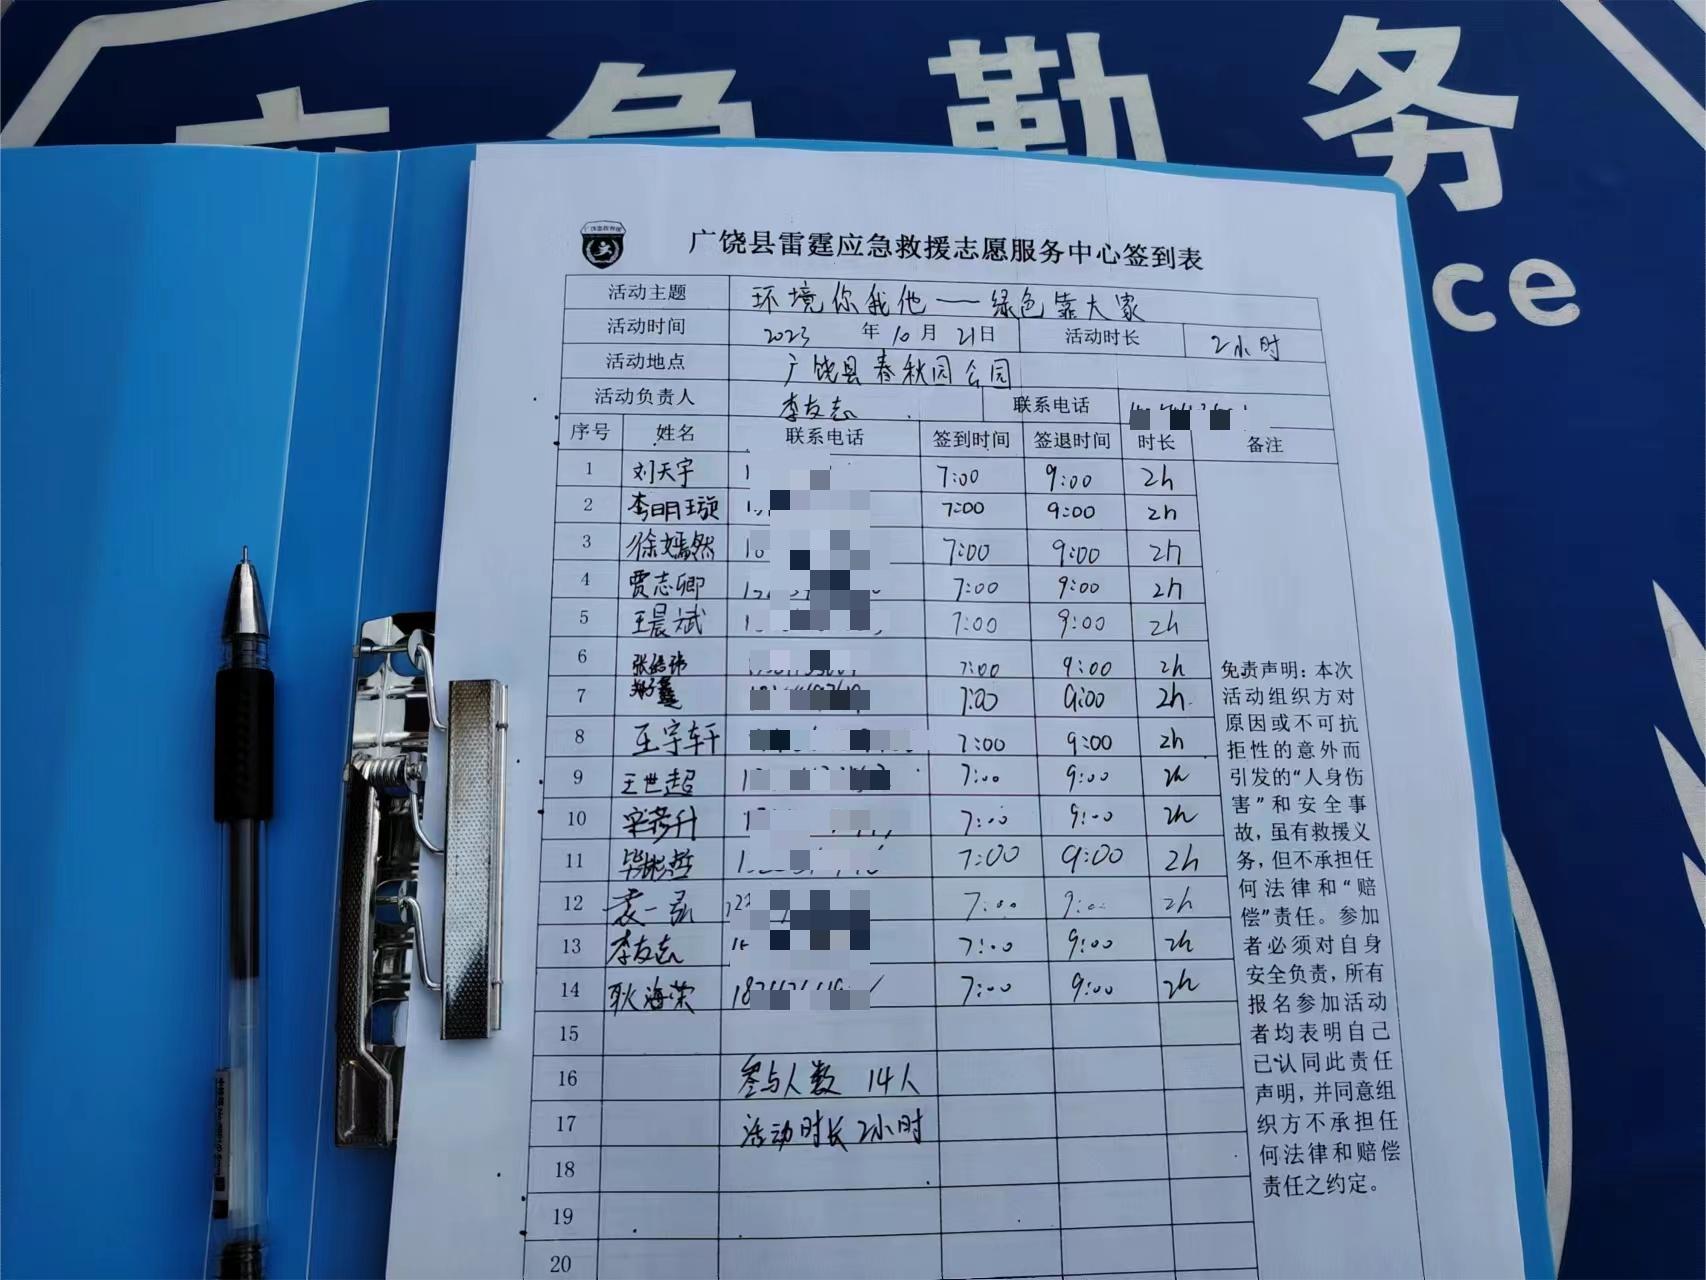 应急勤务
ce
广饶县雷霆应急救援志愿服务中心签到表
活动主题 环境你我他——绿色靠大家
活动时间 2023 年 10 月 21 日 活动时长 2小时
活动地点 广饶县春秋园公园
活动负责人 李友志 联系电话
序号 姓名 联系电话 签到时间 签退时间 时长 备注
1 刘天宇 7:00 9:00 2h
2 李明璇 7:00 9:00 2h
3 徐嫣然 7:00 9:00 2h
4 贾志卿 7:00 9:00 2h
5 王晨斌 7:00 9:00 2h
6 7:00 9:00 2h
7 7:00 9:00 2h
8 王宇轩 7:00 9:00 2h
9 王世超 7:00 9:00 2h
10 7:00 9:00 2h
11 7:00 9:00 2h
12 7:00 9:00 2h
13 李友志 7:00 9:00 2h
14 耿海荣 7:00 9:00 2h
15
16 参与人数 14人
17 活动时长 2小时
18
19
20
免责声明：本次
活动组织方对
原因或不可抗
拒性的意外而
引发的“人身伤
害”和安全事
故，虽有救援义
务，但不承担任
何法律和“赔
偿”责任。参加
者必须对自身
安全负责，所有
报名参加活动
者均表明自己
已认同此责任
声明，并同意组
织方不承担任
何法律和赔偿
责任之约定。